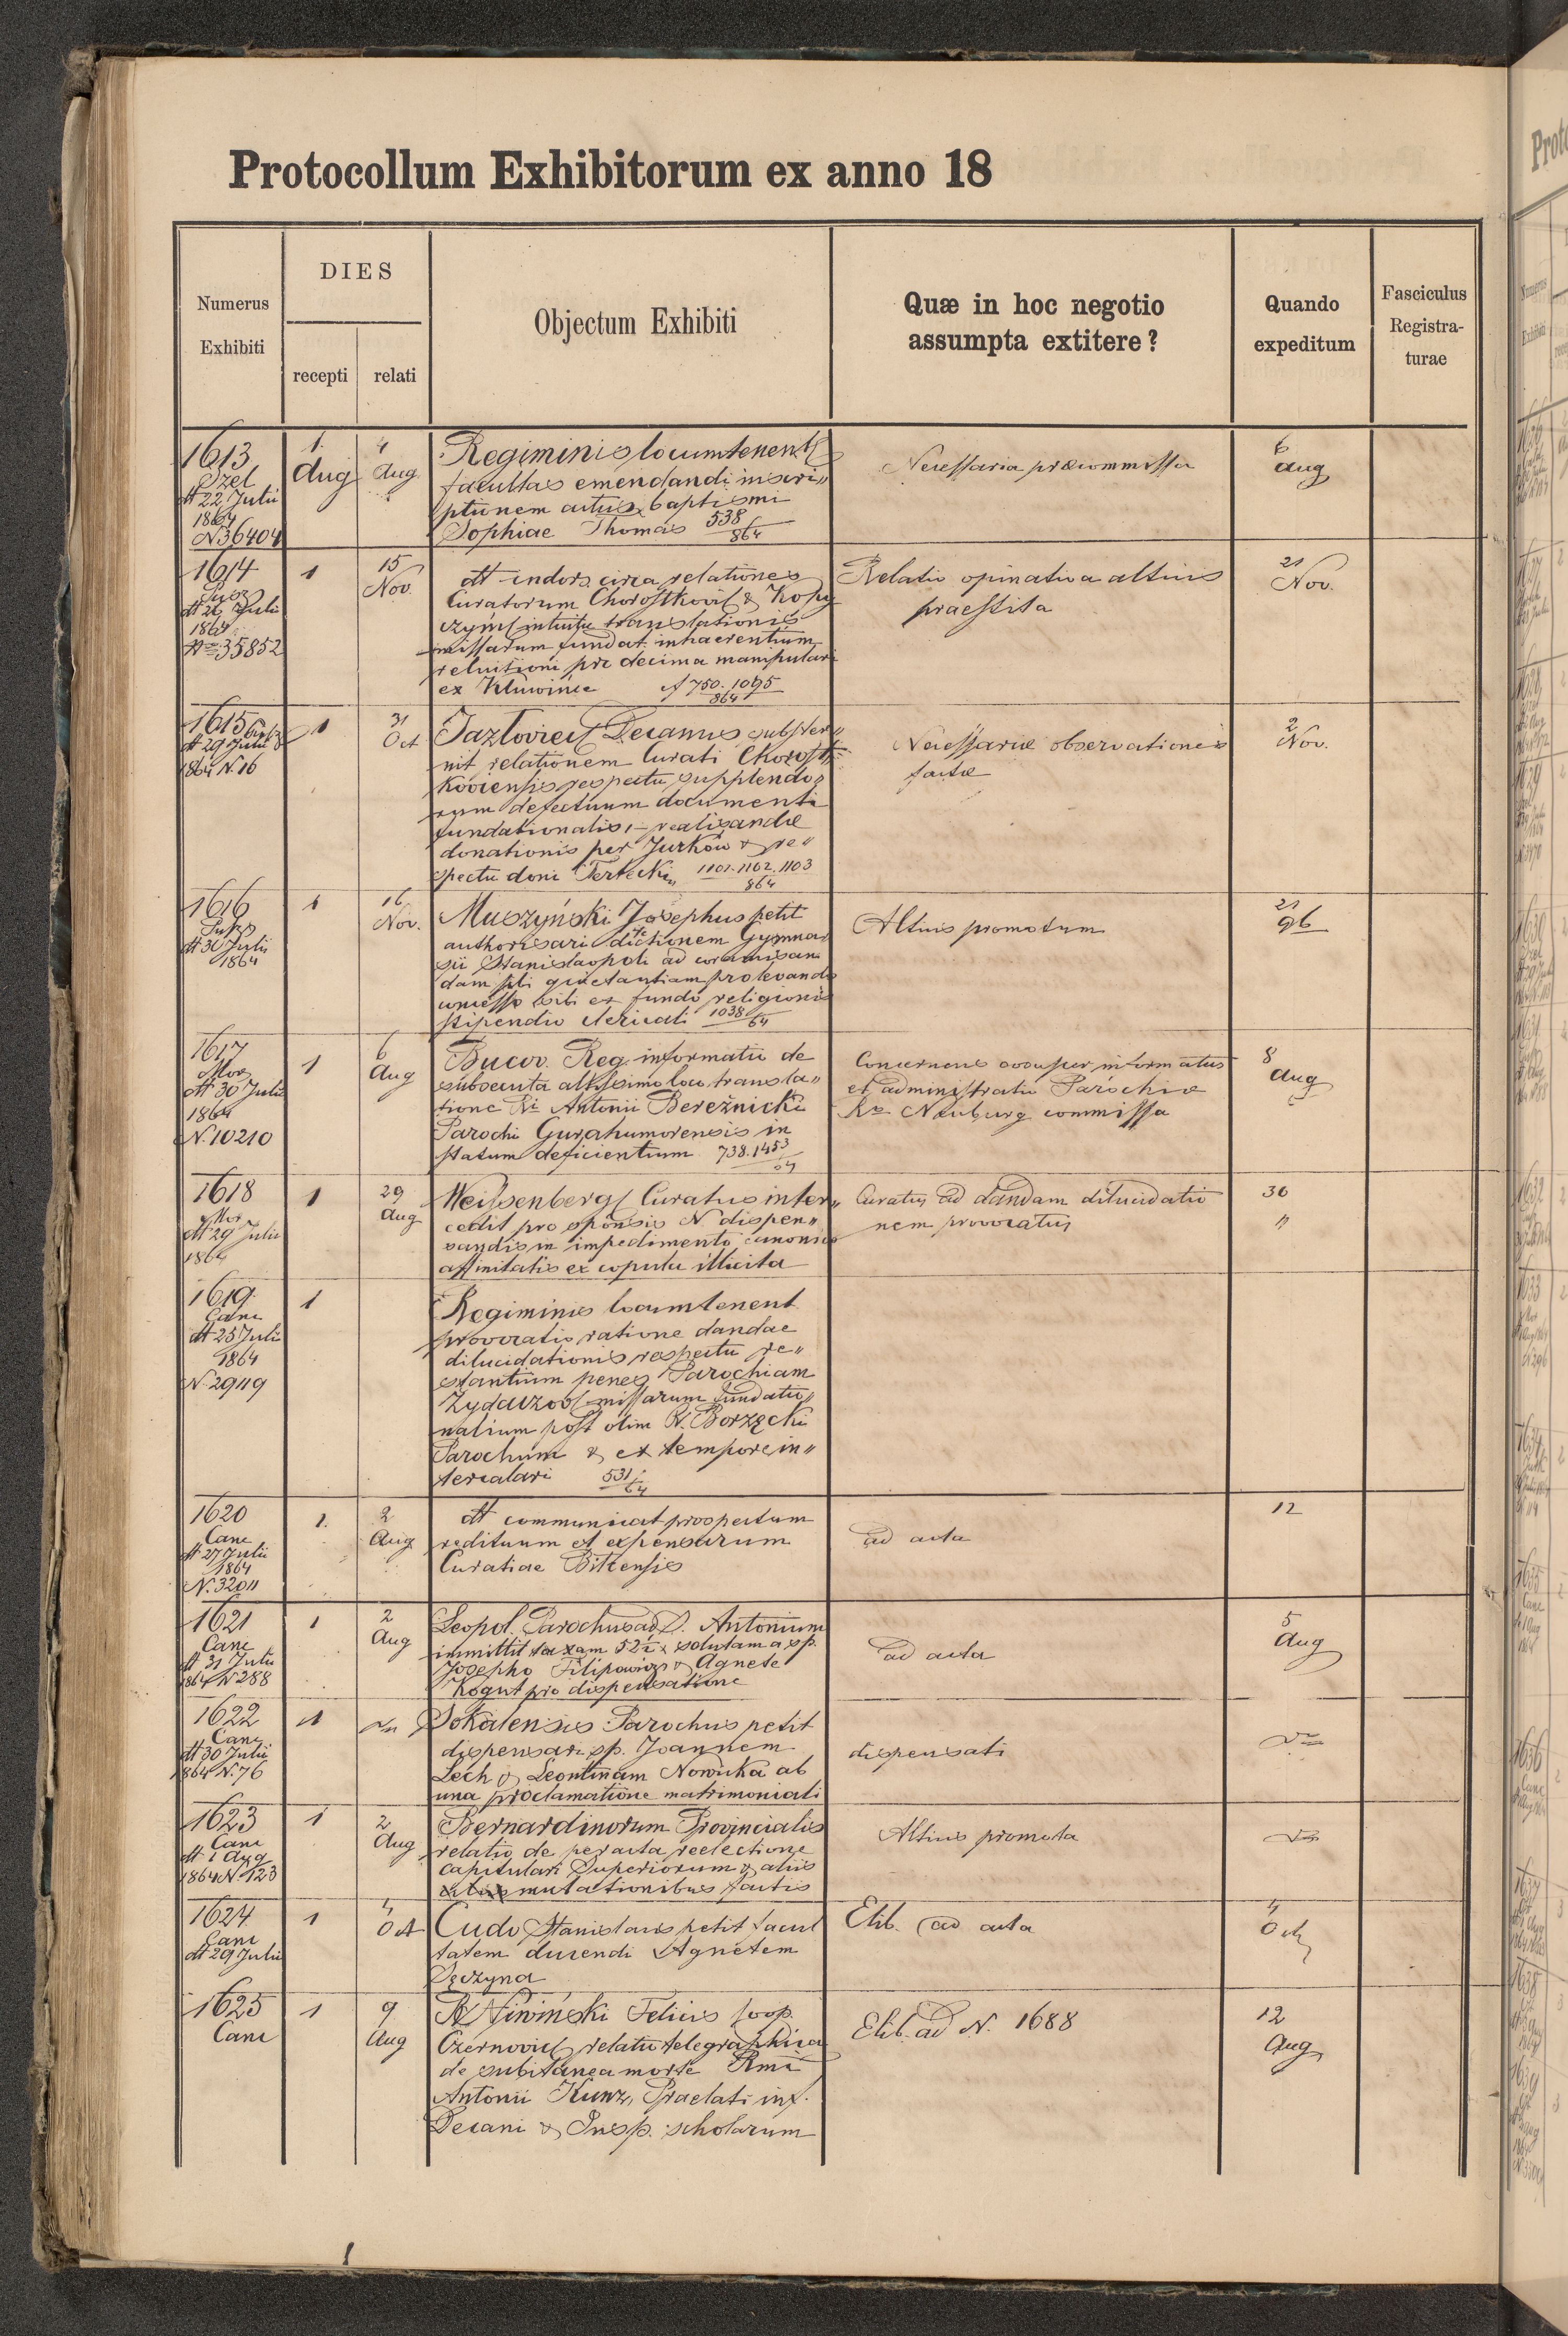 Protocollum Exhibitorum ex anno 18
Numerus
Exhibiti
DIES
recepti
relati
Objectum Exhibiti
Quæ in hoc negotio
assumpta extitere?
Quando
expeditum
Fasciculus
Registra-
turae
1613
Szel
dt 22 Julii
1864
N 36404
1.
Aug
4
Aug
Regiminis locumtenent
facultas emendandi inscri„
ptionem actus baptismi
Sophiae Thomas 538/864
Necessaria præcommissa
6
Aug
1614
dt 26 Julii
1864
No 35852
1
15
Nov.
dt indors circa relationes
Curatorum Chorostkoviens & Kopy
czyns intuitu translationis
missarum fundat inhaerentium
reluitioni pro decima manipulari
ex Kluwince ad 750. 1095/864
Relatio opinativa altius
praestita
21
Nov.
1615
dt 29 Julii
1864 N. 16
1
31
Oct
Jazloviec Decanus subster„
nit relationem Curati Chorost„
koviensis respectu supplendo„
rum defectuum documenti
fundationalis, realisandæ
donationis per Jurkow & re„
spectu doni Tertecki„ 1101. 1102. 1103/864
Necessariæ observationes
factæ
2
Nov.
1616
dt 30 Julii
1864
1
16
Nov.
Muszyński Josephus petit
authorisari dictionem Gymna
sii Stanislaopoli ad coramisan
dam sibi quietantiam pro levando
concesso sibi ex fundo religionis
stipendio clericali 1038/64
Altius promotum
21
9b
1617
Mor
dt 30 Julii
1864
N. 10210
1
6
Aug
Bucov. Reg. informatio de
subsecuta altissimo loco transla„
tione Ri Antonii Berežnicki
Parochi Gurahumorensis in
statum deficientium 738. 1453/64
Concernens desuper informatus
et administratio Parochiæ
Ro Neuburg commissa
8
Aug
1618
Mor
dt 29 Julii
1864
1
29
Aug
Weissenberg Curatus inter„
cedit pro sponsis N. dispen„
sandis in impedimento canonico
affinitatis ex copula illicita
Curatus ad dandam dilucidatio
nem provocatus
30
„
1619
Canc
dt 25 Julii
1864
N. 29119
1
Regiminis locumtenent
provocatio ratione dandae
dilucidationis respectu re„
stantium penes Parochiam
Zydaczov missarum fundatio„
nalium post olim R. Borzęcki
Parochum & ex tempore in„
tercalari 531/64
1620
Canc
dt 27 Julii
1864
N. 32011
1.
2
Aug
dt communicat prospectum
redituum et expensarum
Curatiae Bittensis
ad acta
12
1621
Canc
dt 31 Julii
1864 N 288
1
2
Aug
Leopol. Parochus ad S. Antonium
immittit taxam 52½ x solutam a sp.
Josepho Filipowicz & Agnete
Kogut pro dispensatione
ad acta
5
Aug
1622
Canc
dt 30 Julii
1864 N. 76
1
Sokalensis Parochus petit
dispensari sp. Joannem
Lech & Leontinam Nowicka ab
una proclamatione matrimoniali
dispensati
1623
Canc
dt 1 Aug
1864 N. 123
1
2
Aug
Bernardinorum Provincialis
relatio de peracta reelectione
capitulari Superiorum & aliis
mutationibus factis
Altius promota
1624
Canc
dt 29 Julii
1
4
Oct
Cudo Stanislaus petit facul
tatem ducendi Agnetem
Sęczyna
Exh. ad acta
4
Oct
1625
Canc
1
9
Aug
R. Niwiński Felicis Coop.
Czernovic relatio telegraphica
de subitanea morte Rmi
Antonii Kunz, Praelati inf.
Decani & Insp. scholarum
Exh. ad N. 1688
12
Aug